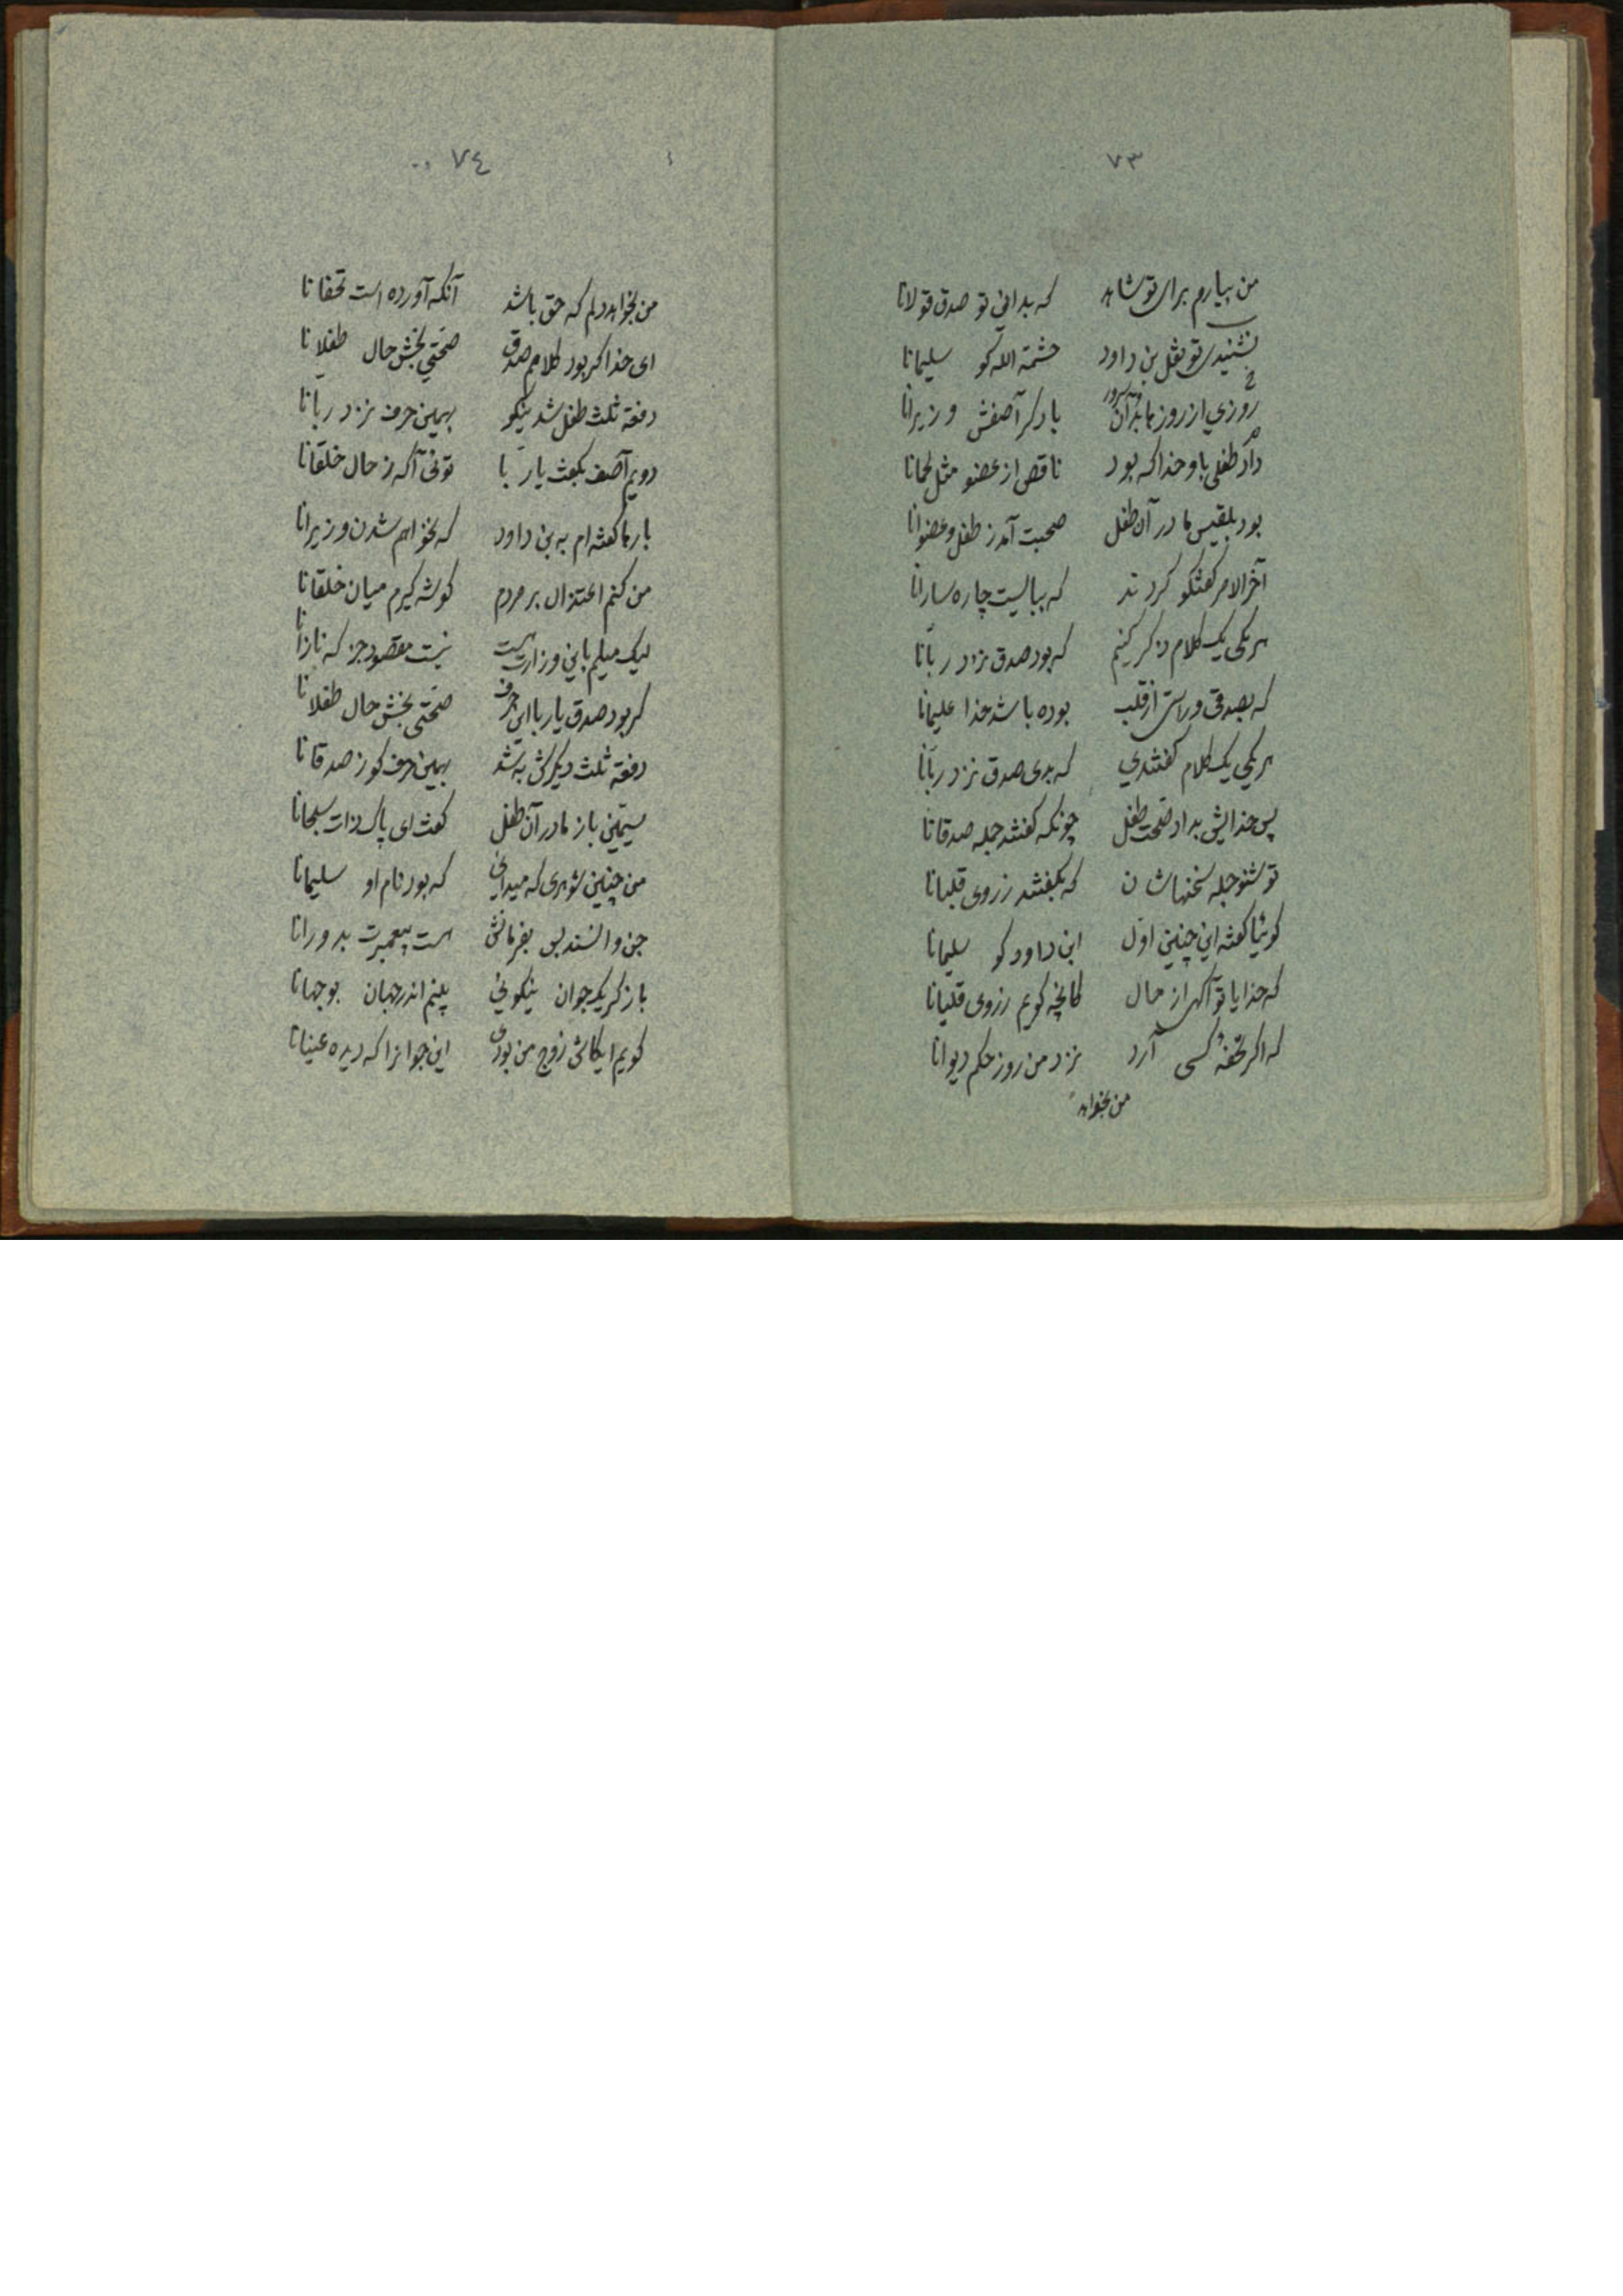 ٧٣
من بیارم برای تو شاهد که بدانی تو صدق قولانا
نشنیدی تو نقل بن داود حشمة الله کو سلیمانا
روزی از روزها بدان سرور با دگر آصفش وزیرانا
داد طفلی باو خدا که بود ناقص از عضو مثل لحمانا
بود بلقیس مادر آن طفل صحبت آمد ز طفل و عضوانا
آخر الامر گفتگو کردند که ببایست چاره سازانا
هر یکی یک کلام ذکر کنیم که بود صدق نزد ربانا
که بصدق و راستی از قلب بوده باشد خدا علیمانا
هر یکی یک کلام گفتندی که بدی صدق نزد ربانا
پس خدایش بداد صحت طفل چونکه گفتند جمله صدقانا
تو شنو جمله سخنهاشان که بگفتند ز روی قلبانا
گوئیا گفته این چنین اول ابن داود کو سلیمانا
که خدایا تو آگهی از حال کانچه گویم ز روی قلبانا
که اگر تحفه کسی آرد نزد من روز حکم دیوانا
من نخواهد
٧٤
من نخواهد دلم که حق باشد آنکه آورده است تحفانا
ای خدا گر بود کلامم صدق صحتی بخش حال طفلانا
دفعة ثلث طفل شد نیکو بهمین حرف نزد ربانا
دویم آصف بگفت یا ربا توئی آگه ز حال خلقانا
بارها گفته ام به بن داود که نخواهم شدن وزیرانا
من کنم اعتزال بر مردم گوشه گیرم میان خلقانا
لیک میلم باین وزارت است نیست مقصود جز که نازانا
گر بود صدق یا ربا این حرف صحتی بخش حال طفلانا
دفعة ثلث دیگرش به شد بهمین حرف کو ز صدقانا
سیمین باز مادر آن طفل گفت ای پاک ذات سبحانا
من چنین شوهری که میدانی که بود نام او سلیمانا
جن و انسند بس بفرمانش هست پیغمبرت بدورانا
باز گر یک جوان نیکوئی بینم اندر جهان بوجهانا
گویم ایکاش زوج من بودی این جوانرا که دیده عینانا